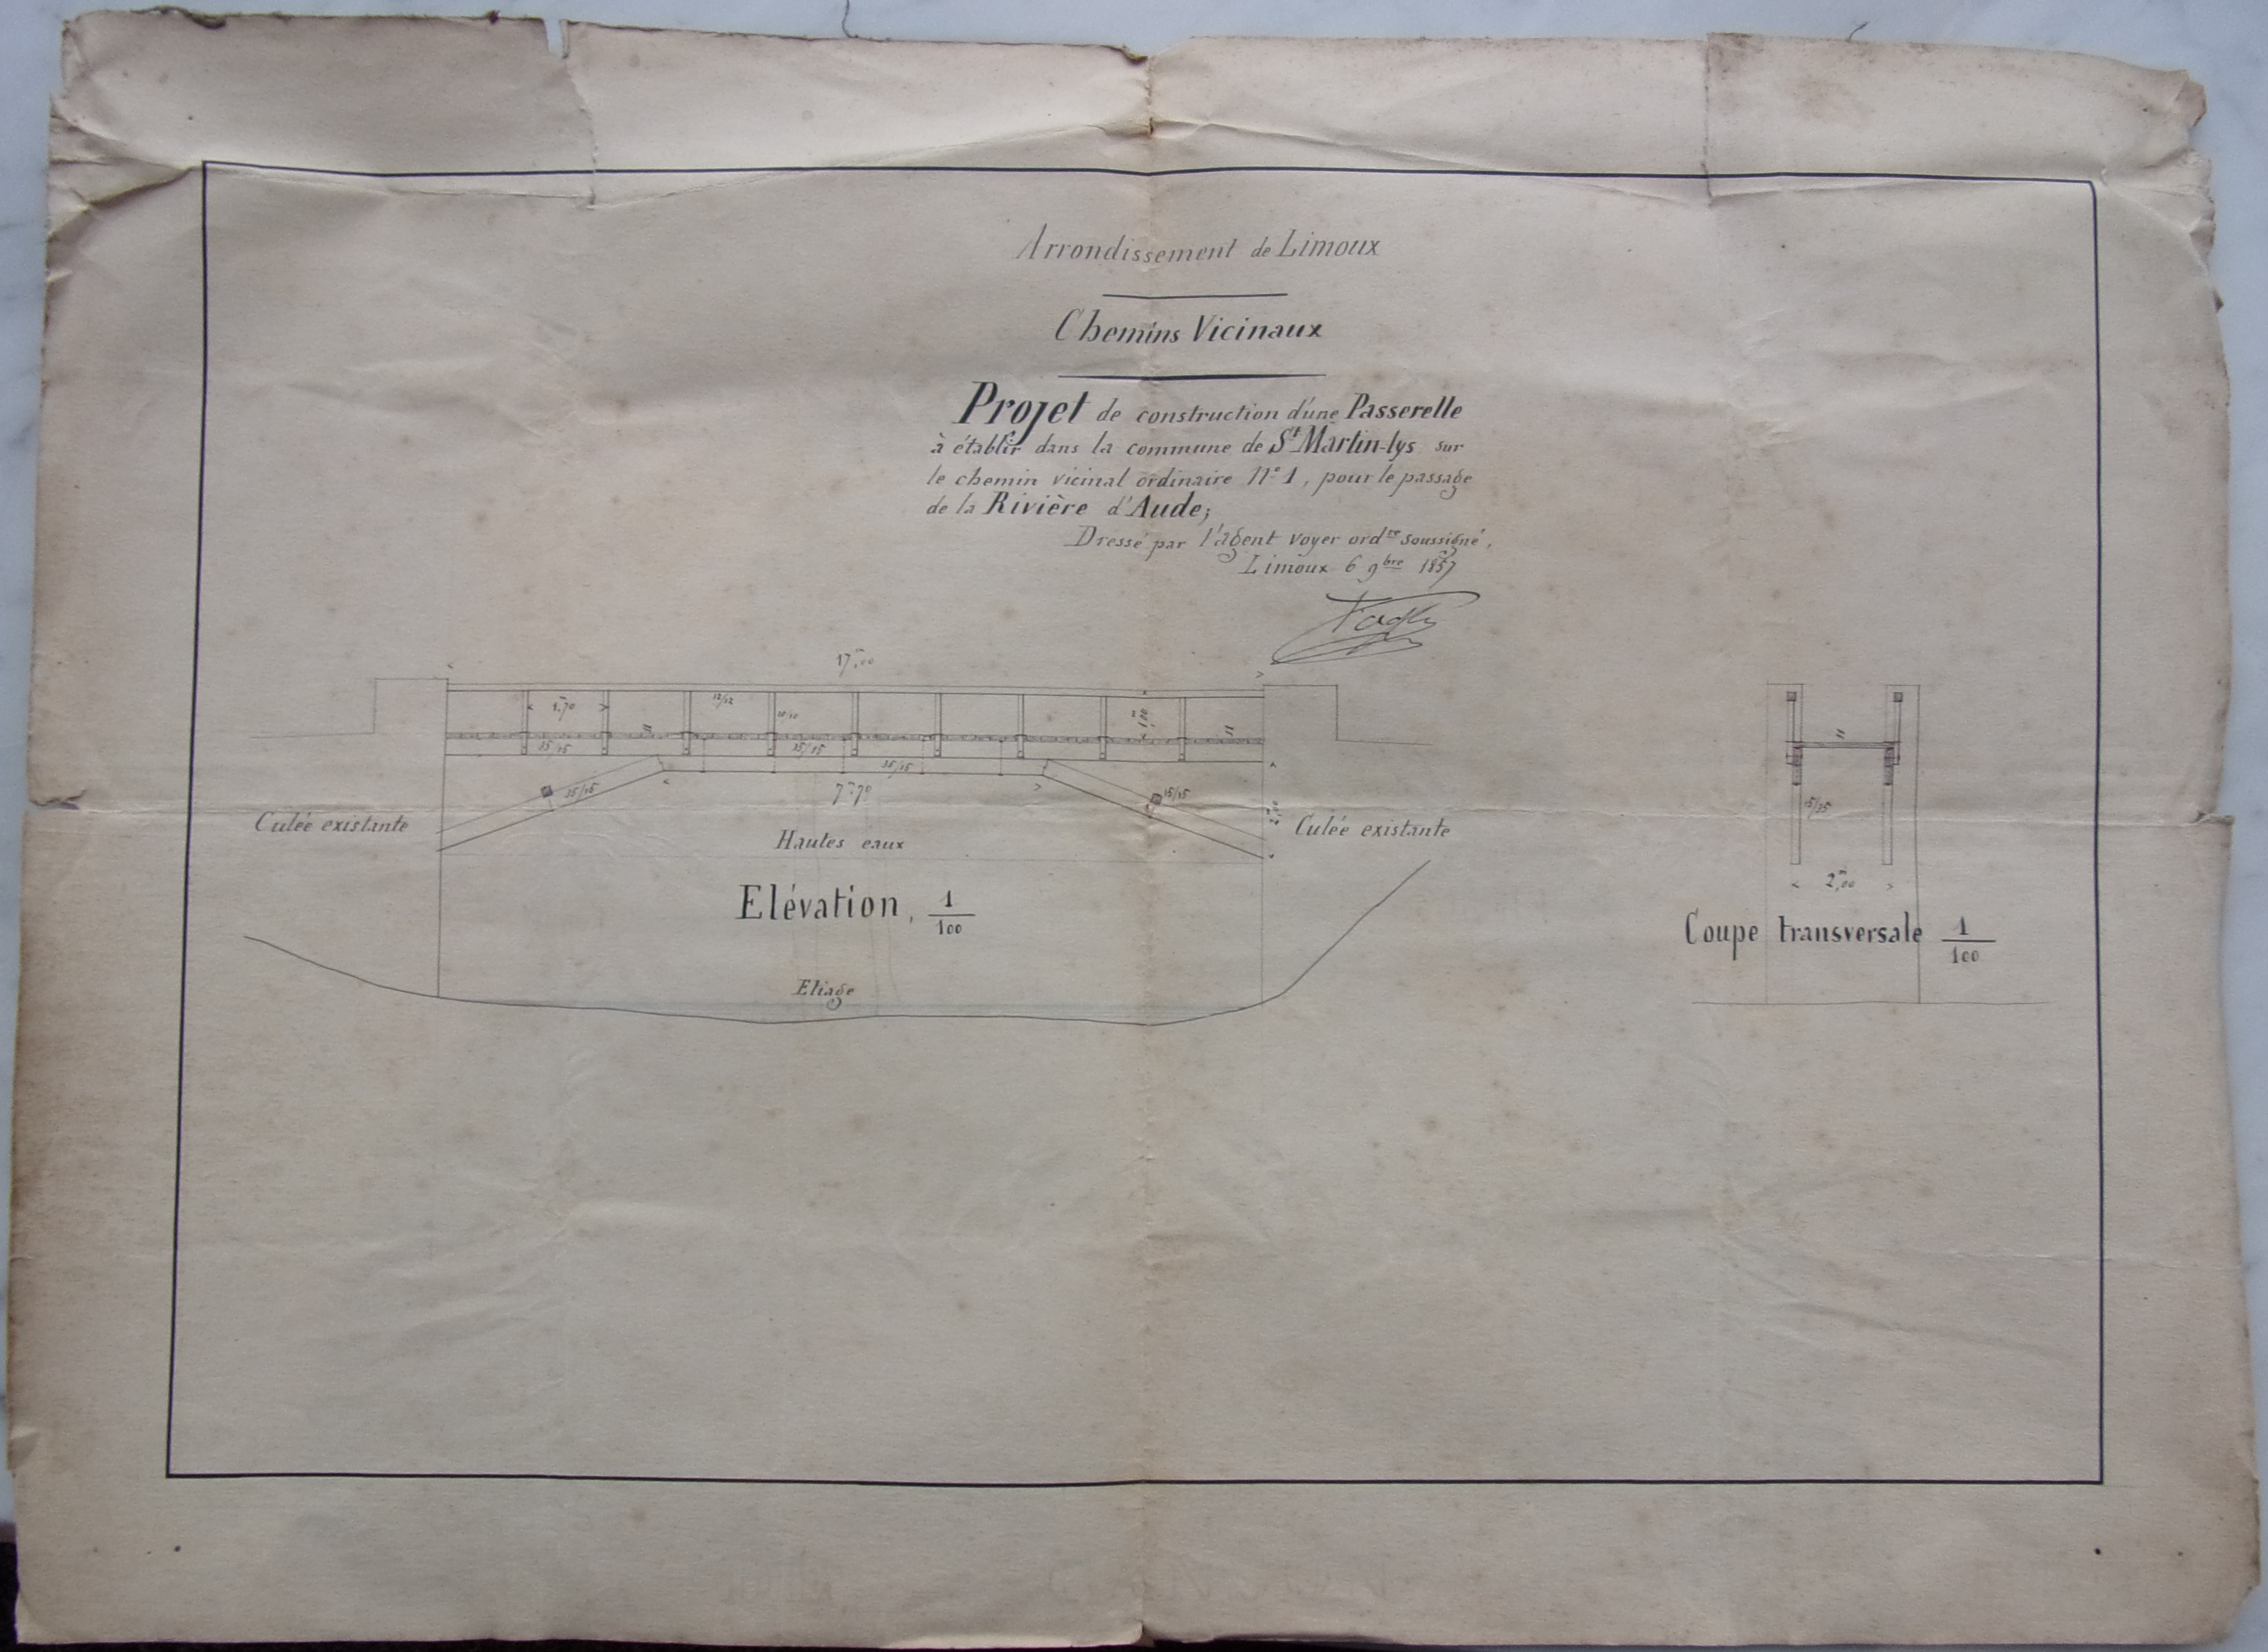 Arrondissement de Limoux
Chemins Vicinaux
Projet de construction d'une Passerelle
à établir dans la commune de St Martin-lys sur
le chemin vicinal ordinaire N° 1, pour le passage
de la Rivière d'Aude;
Dressé par l'agent voyer ordre soussigné,
Limoux 6 9bre 1857
17m,00
1m,70
12/12
10/10
1m,00
35/15
35/15
35/15
35/15
7m,70
15/15
Culée existante
Hautes eaux
Culée existante
Elévation, 1/100
Etiage
15/35
2m,00
Coupe transversale 1/100